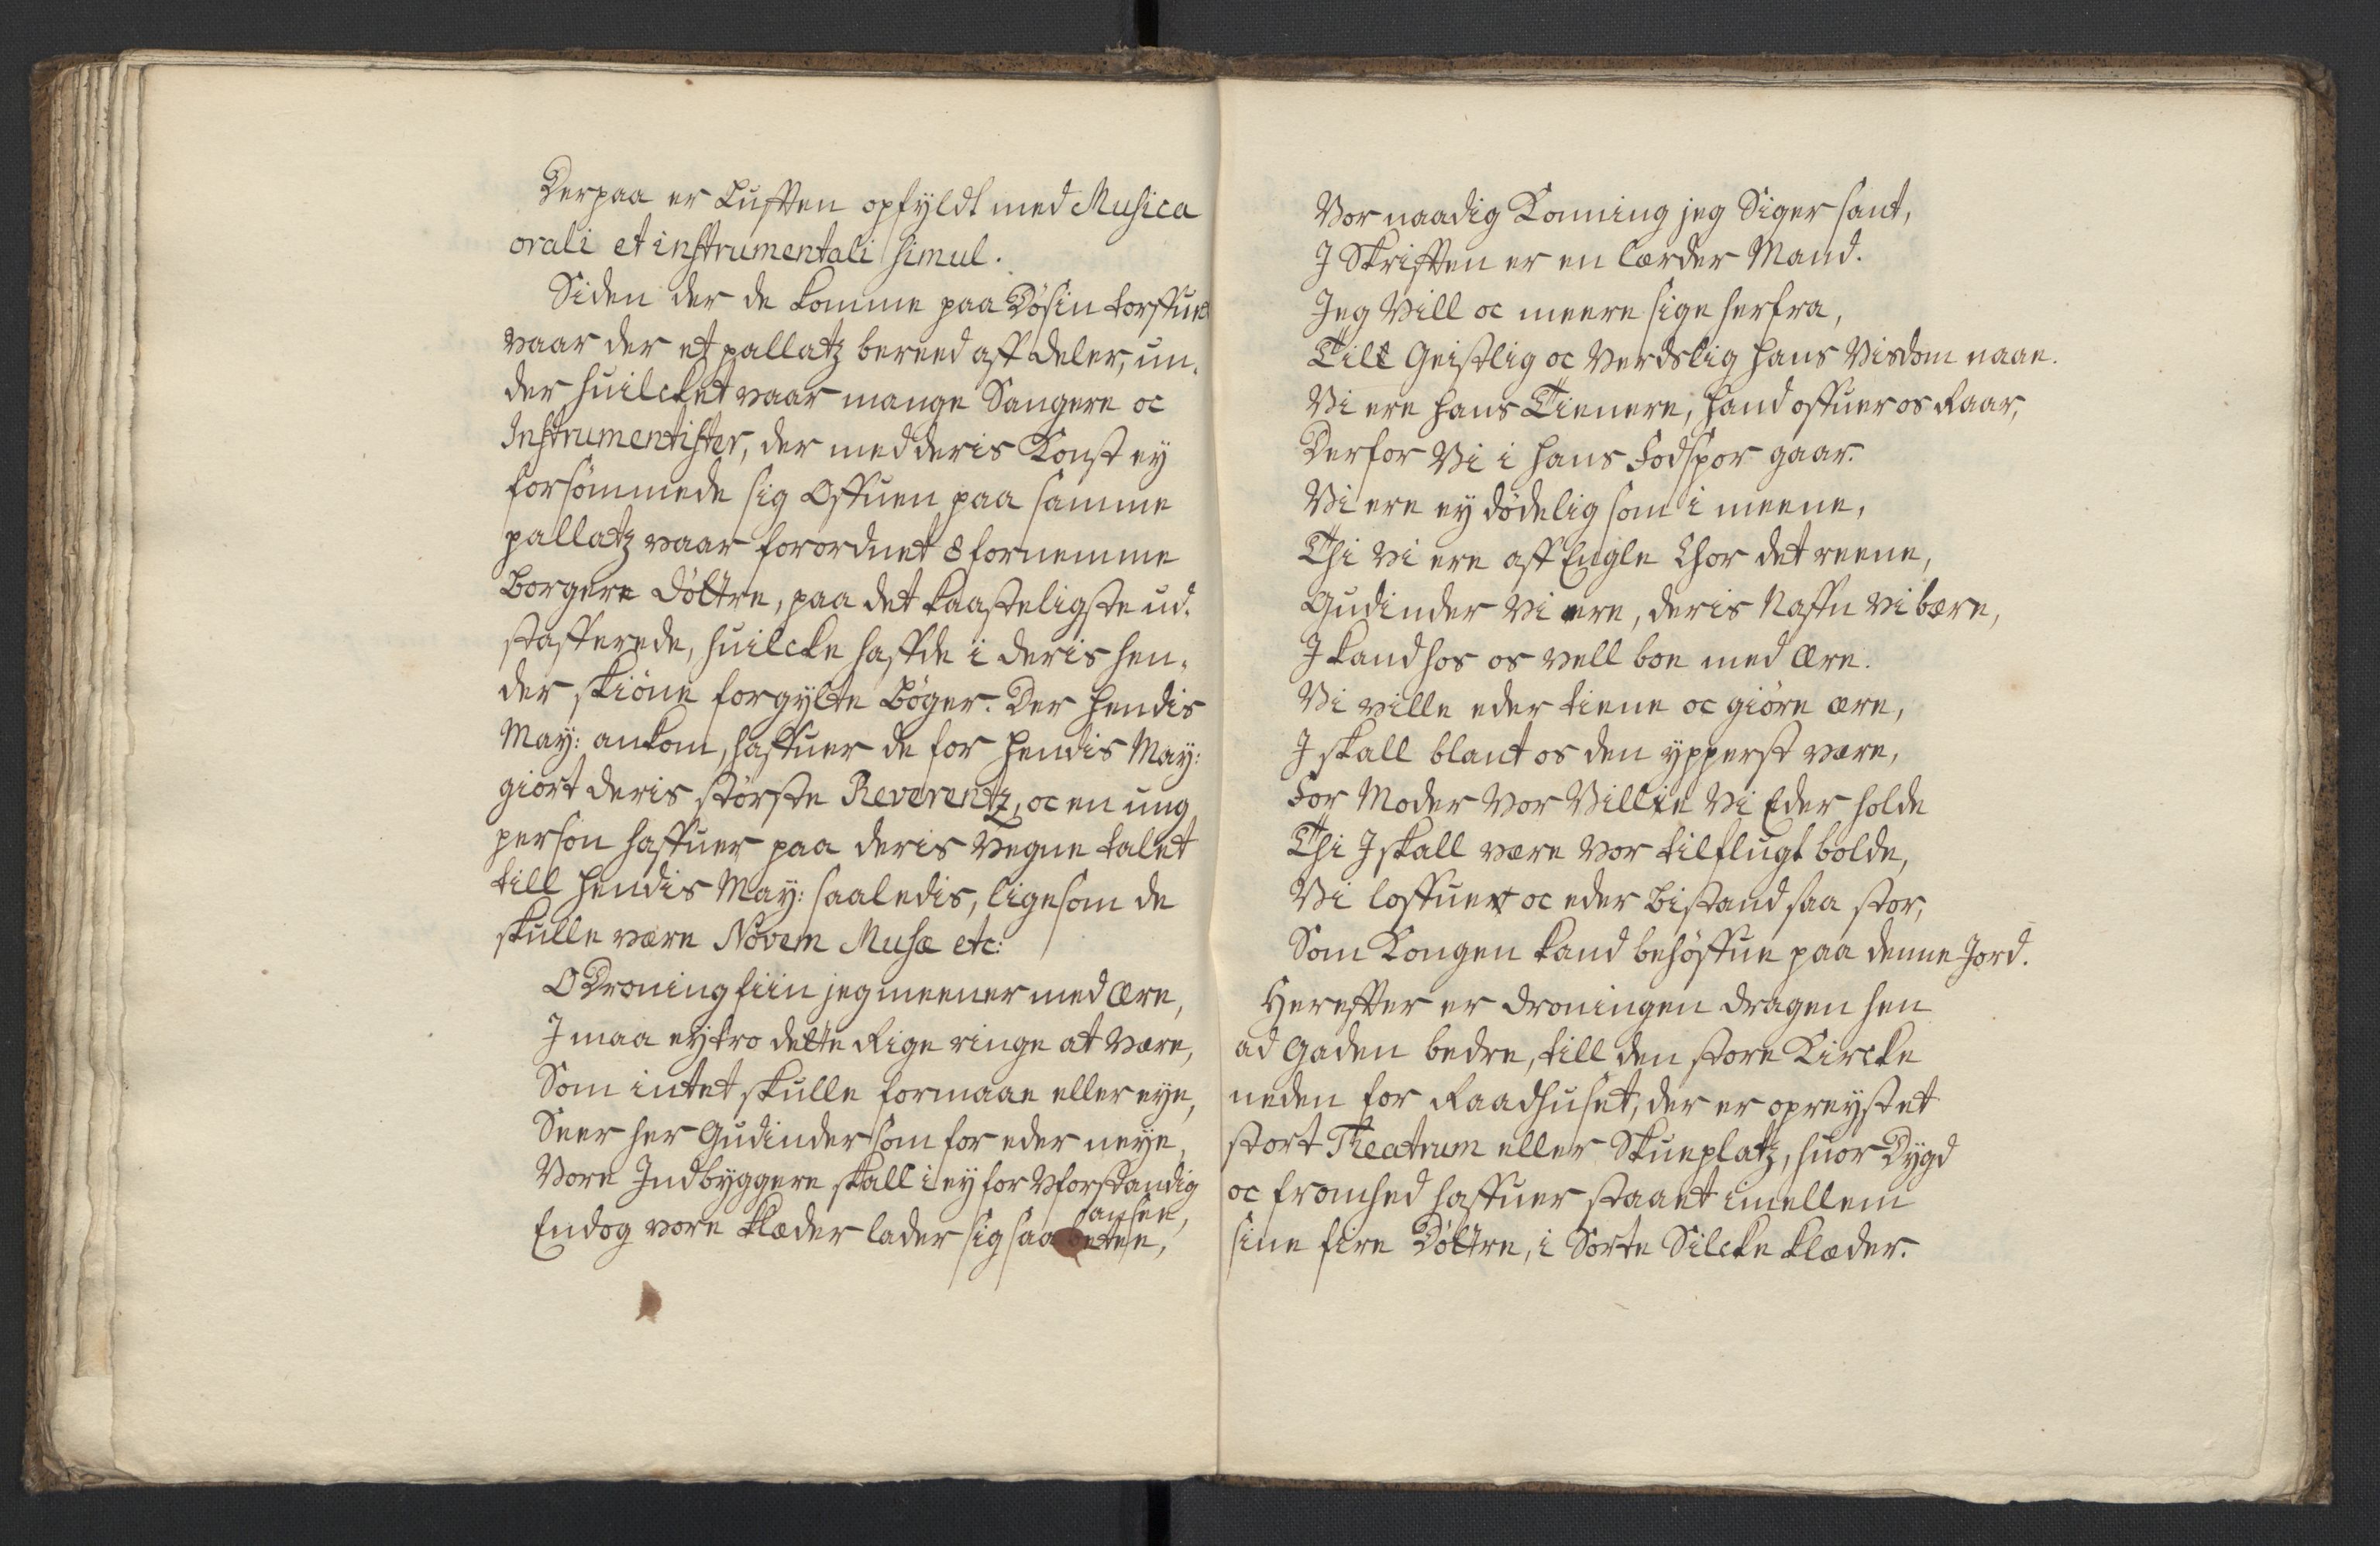 Derpaa er Lufften opfyldt med Musica
orali et instrumentali simul.
Siden der de komme paa Dösin torffue
vaar der et pallatz bereed aff deler, un,
der huilcket vaar mange Sangere oc
Instrumentister, der med deris Konst ey
forsömmede sig Offuen paa samme
pallatz vaar forordnet 8 fornemme
Borgere Döttre, paa det kaasteligste ud,
stafferede, huilcke haffde i deris hen,
der skiöne forgylte Böger. Der hendis
May: ankom, haffuer de for hendis May:
giort deris störste Reverentz, oc en ung
person haffuer paa deris vegne talet
till hendis May: saaledis, ligesom de
skulle være Novem Musæ etc:
O Droning fiin jeg meener med Ære,
J maa ey tro dette Rige ringe at være,
Som intet skulle formaae eller eye,
Seer her Gudinder som for eder neye,
Vore Indbyggere skall i ey for Vforstandig
ansee,
Endog vore klæder lader sig saa betee,
Vor naadig Konning jeg Siger sant,
J Skrifften er en lærder Mand.
Jeg Vill oc meere sige herfra,
Till Geistlig oc Verdslig hans Visdom naae.
Vi ere hans Tienere, hand offuer os Raar,
Derfor Vi i hans Fodspor gaar.
Vi ere ey dödelig som i meene,
Thi vi ere aff Engle Chor det reene,
Gudinder vi ere, deris Naffn vi bære,
J kand hos os vell boe med Ære.
Vi ville eder tiene oc giöre ære,
J skall blant os den ypperst være,
For Moder vor Villie vi Eder holde
Thi J skall være vor tilflugt bolde,
Vi loffuer oc eder bistand saa stor,
Som Kongen kand behöffue paa denne Jord.
Hereffter er droningen dragen hen
ad Gaden bedre, till den store Kircke
neden for Raadhuset, der er opreystet
stort Theatrum eller Skueplatz, huor Dygd
oc fromhed haffuer staaet imellem
sine fire Döttre, i Sorte Silcke klæder.